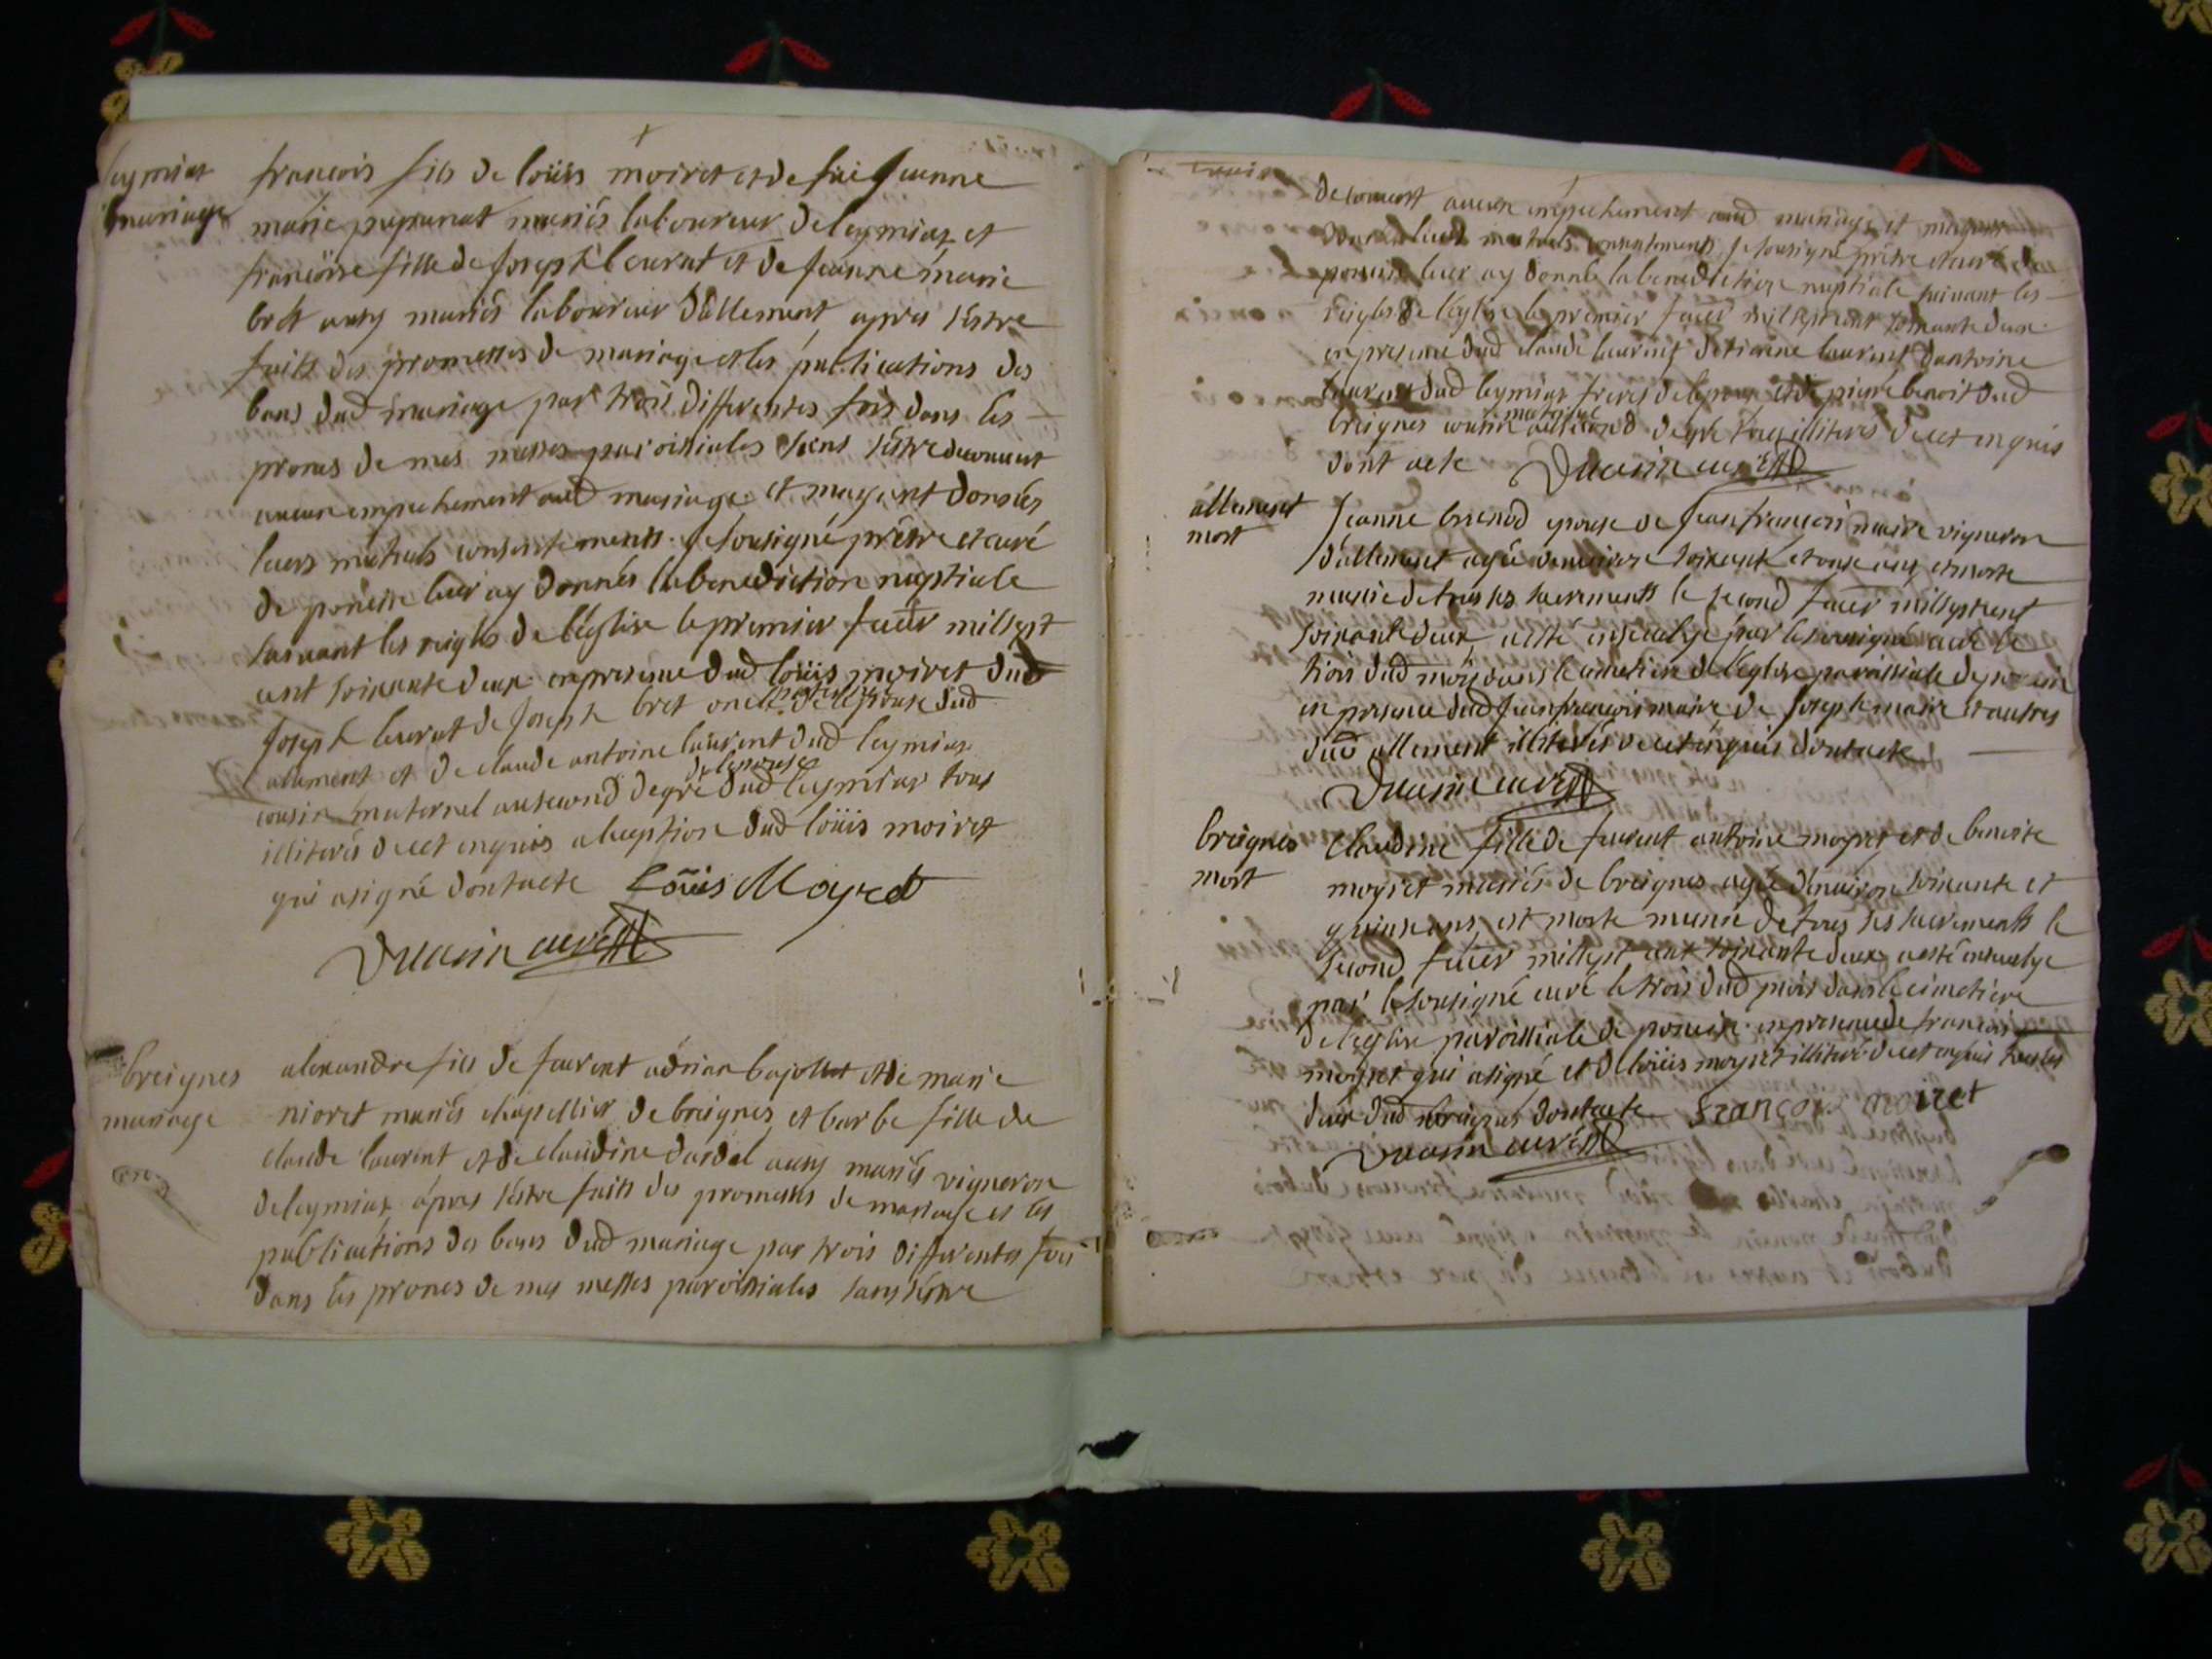 leymiat françois fils de loüis moiret et de fuë Jeanne
mariage marie papunat mariés laboureur de leymiat et
françoise fille de Joseph leurat et de Jeanne marie
brét aussy mariés laboureur d'allement apres s'estre
faits des promesses de mariage et les publications des
bans dud mariage par trois differentes fois dans les
prones de mes messes paroissiales sans s'estre decouvert
aucun empechement aud mariage et mayant donnés
leurs mutuels consentements Je sousigné prêtre et curé
de poncin leur ay donnés la benediction nuptiale
suivant les reigles de l'eglise le premier feuer mil sept
cent soixante deux en presence dud loüis moiret dud
Joseph leurat de Joseph bret oncle maternel de l'epouse dud
allement et de claude antoine laurent dud leymiat
cousin maternel au second degré de l'epouse dud leymiat tous
illiterés de cet enquis a l'exception dud loüis moiret
qui a signé dont acte Loüis Mayret
Ducurin curé
breignes alexandre fils de feu vent adrian bajollet et de marie
mariage nioret mariés chapellier de breignes et barbe fille de
claude laurent et de claudine dardel aussy mariés vigneron
de leymiat apres s'estre faits des promesses de mariage et les
publications des bans dud mariage par trois differentes fois
dans les prones de mes messes paroissiales sans s'estre
decouvert aucun empechement aud mariage et mayant
donné leurs mutuels consentements Je sousigné prêtre et curé de
poncin leur ay donné la benediction nuptiale suivant les
reigles de l'eglise le premier feuer mil sept cent soixante deux
en presence dud claude laurent d'etienne laurent d'antoine
laurent dud leymiat freres de l'epouse et de pierre benoit dud
breignes cousin maternel au second degré tous illiterés de cet enquis
dont acte Ducurin curé
allement Jeanne brunod epouse de Jean françois maire vigneron
mort d'allement agée d'environ soixante et onze ans est morte
munie de tous ses sacrements le second feuer mil sept cent
soixante deux a esté ensevelye par le sousigné curé le
trois dud mois dans le cimetiere de l'eglise paroissiale de poncin
en presence dud Jean françois maire de Joseph maire et autres
dud allement illiterés de cet enquis dont acte
Ducurin curé
breignes Claudine fille de feu vent antoine moyret et de benoite
mort moyret mariés de breignes agée d'environ soixante et
quinze ans est morte munie de tous ses sacrements le
second feuer mil sept cent soixante deux a esté ensevelye
par le sousigné curé le trois dud mois dans le cimetiere
de l'eglise paroissiale de poncin en presence de françois
moyret qui a signé et de loüis moyret illiteré de cet enquis tous les
deux dud breignes dont acte François moiret
Ducurin curé